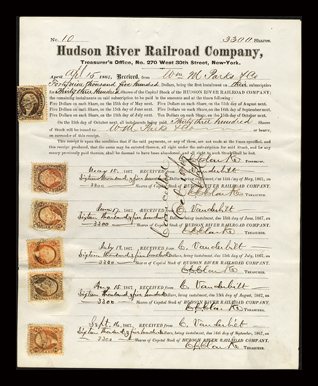 No. 10 3300 Shares.
Hudson River Railroad Company,
Treasurer's Office, No. 270 West 30th Street, New-York.
April 15 1867, Received, from Wm M. Parks & Co
thousand five hundred Dollars, being the first instalment on their subscription
to Thirty three hundred Shares of the Capital Stock of the HUDSON RIVER RAILROAD COMPANY,
the remaining instalments on said subscription to be paid in the amounts and at the times following:
Five Dollars on each Share, on the 15th day of May next. Five Dollars on each Share, on the 15th day of August next.
Five Dollars on each Share, on the 15th day of June next. Five Dollars on each Share, on the 15th day of September next.
Five Dollars on each Share, on the 15th day of July next. Five Dollars on each Share, on the 15th day of October next.
On the 15th day of October next, all instalments being paid, Thirty three hundred Shares of
Stock will be issued to W. M. Parks & Co or bearer,
on surrender of this receipt.
Treasurer.
May 15, 1867. RECEIVED FROM C. Vanderbilt
Sixteen thousand five hundred Dollars, being instalment, due 15th day of May, 1867, on
3300 Shares of Capital Stock of HUDSON RIVER RAILROAD COMPANY.
TREASURER.
June 17 1867. RECEIVED FROM C. Vanderbilt
Sixteen thousand five hundred Dollars, being instalment, due 15th day of June, 1867, on
3300 Shares of Capital Stock of HUDSON RIVER RAILROAD COMPANY.
TREASURER.
July 15 1867. RECEIVED FROM C. Vanderbilt
Sixteen thousand five hundred Dollars, being instalment, due 15th day of July, 1867, on
3300 Shares of Capital Stock of HUDSON RIVER RAILROAD COMPANY.
TREASURER.
Aug 15 1867. RECEIVED FROM C. Vanderbilt
Sixteen thousand five hundred Dollars, being instalment, due 15th day of August, 1867, on
3300 Shares of Capital Stock of HUDSON RIVER RAILROAD COMPANY.
TREASURER.
Sept. 16 1867. RECEIVED FROM C. Vanderbilt
Sixteen thousand five hundred Dollars, being instalment, due 15th day of September, 1867, on
3300 Shares of Capital Stock of HUDSON RIVER RAILROAD COMPANY.
TREASURER.